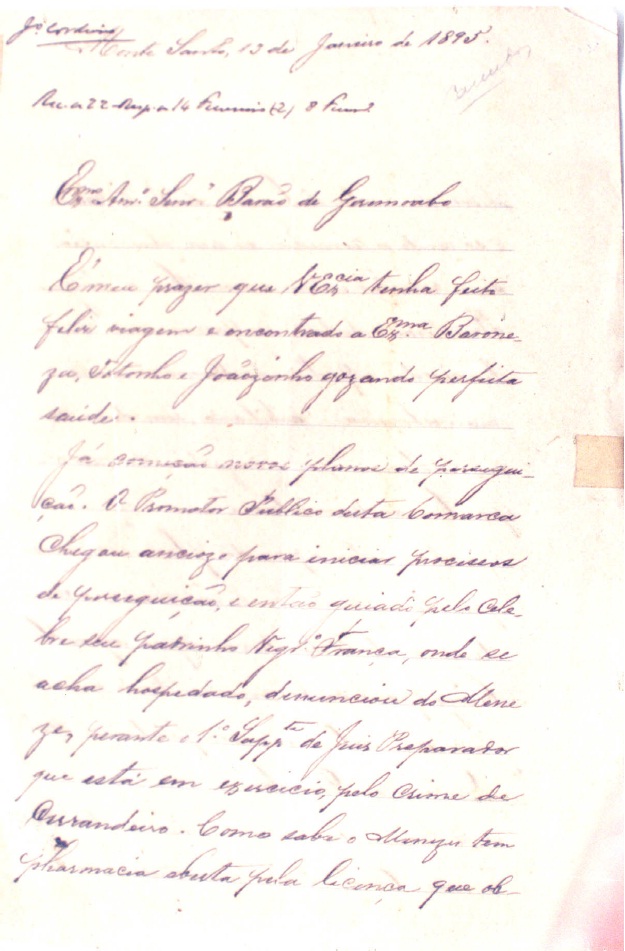 Jº Cordeiro
Monte Santo, 13 de Janeiro de 1895.
Rec. a 22 Resp. a 14 Fevereiro (2)
Exmº Amº Senrº Barão de Geremoabo
É meu prazer que VExcia tenha feito
feliz viagem e encontrado a Exma Barone-
za, Totonho e Joãozinho gozando perfeita
saúde.
Já começão novos planos de persegui-
ção. O Promotor Publico desta Comarca
chegou anciozo para iniciar processos
de perseguição, e então guiado pelo cele-
bre seu padrinho Vigrº França, onde se
acha hospedado, denunciou do Mene
zes, perante o 1º Suppte de Juis Preparador
que está em exercicio, pelo crime de
Currandeiro. Como sabe o Menezes tem
pharmacia aberta pela licença que ob-